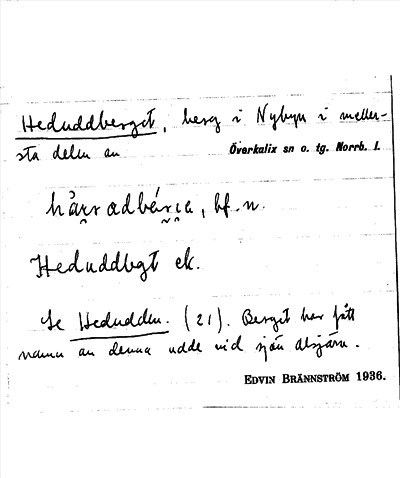 Heduddberget, berg i Nybyn i meller-
sta delen av Överkalix sn o. tg. Norrb. l.
bf. n.
Heduddbgt ek.
Se Hedudden. (21). Berget har fått
namn av denna udde vid sjön
EDVIN BRÄNNSTRÖM 1936.